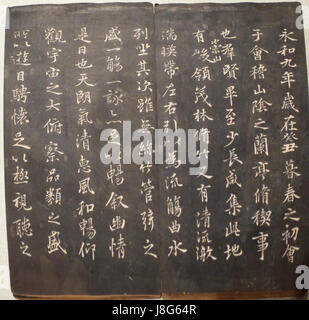 永和九年歲在癸丑暮春之初會
于會稽山陰之蘭亭脩禊事
也羣賢畢至少長咸集此地
有崇山
峻領茂林脩竹又有清流激
湍暎帶左右引以為流觴曲水
列坐其次雖無絲竹管弦之
盛一觴一詠亦足以暢敘幽情
是日也天朗氣清惠風和暢仰
觀宇宙之大俯察品類之盛
所以遊目騁懷足以極視聽之
alamy
2J8G64R